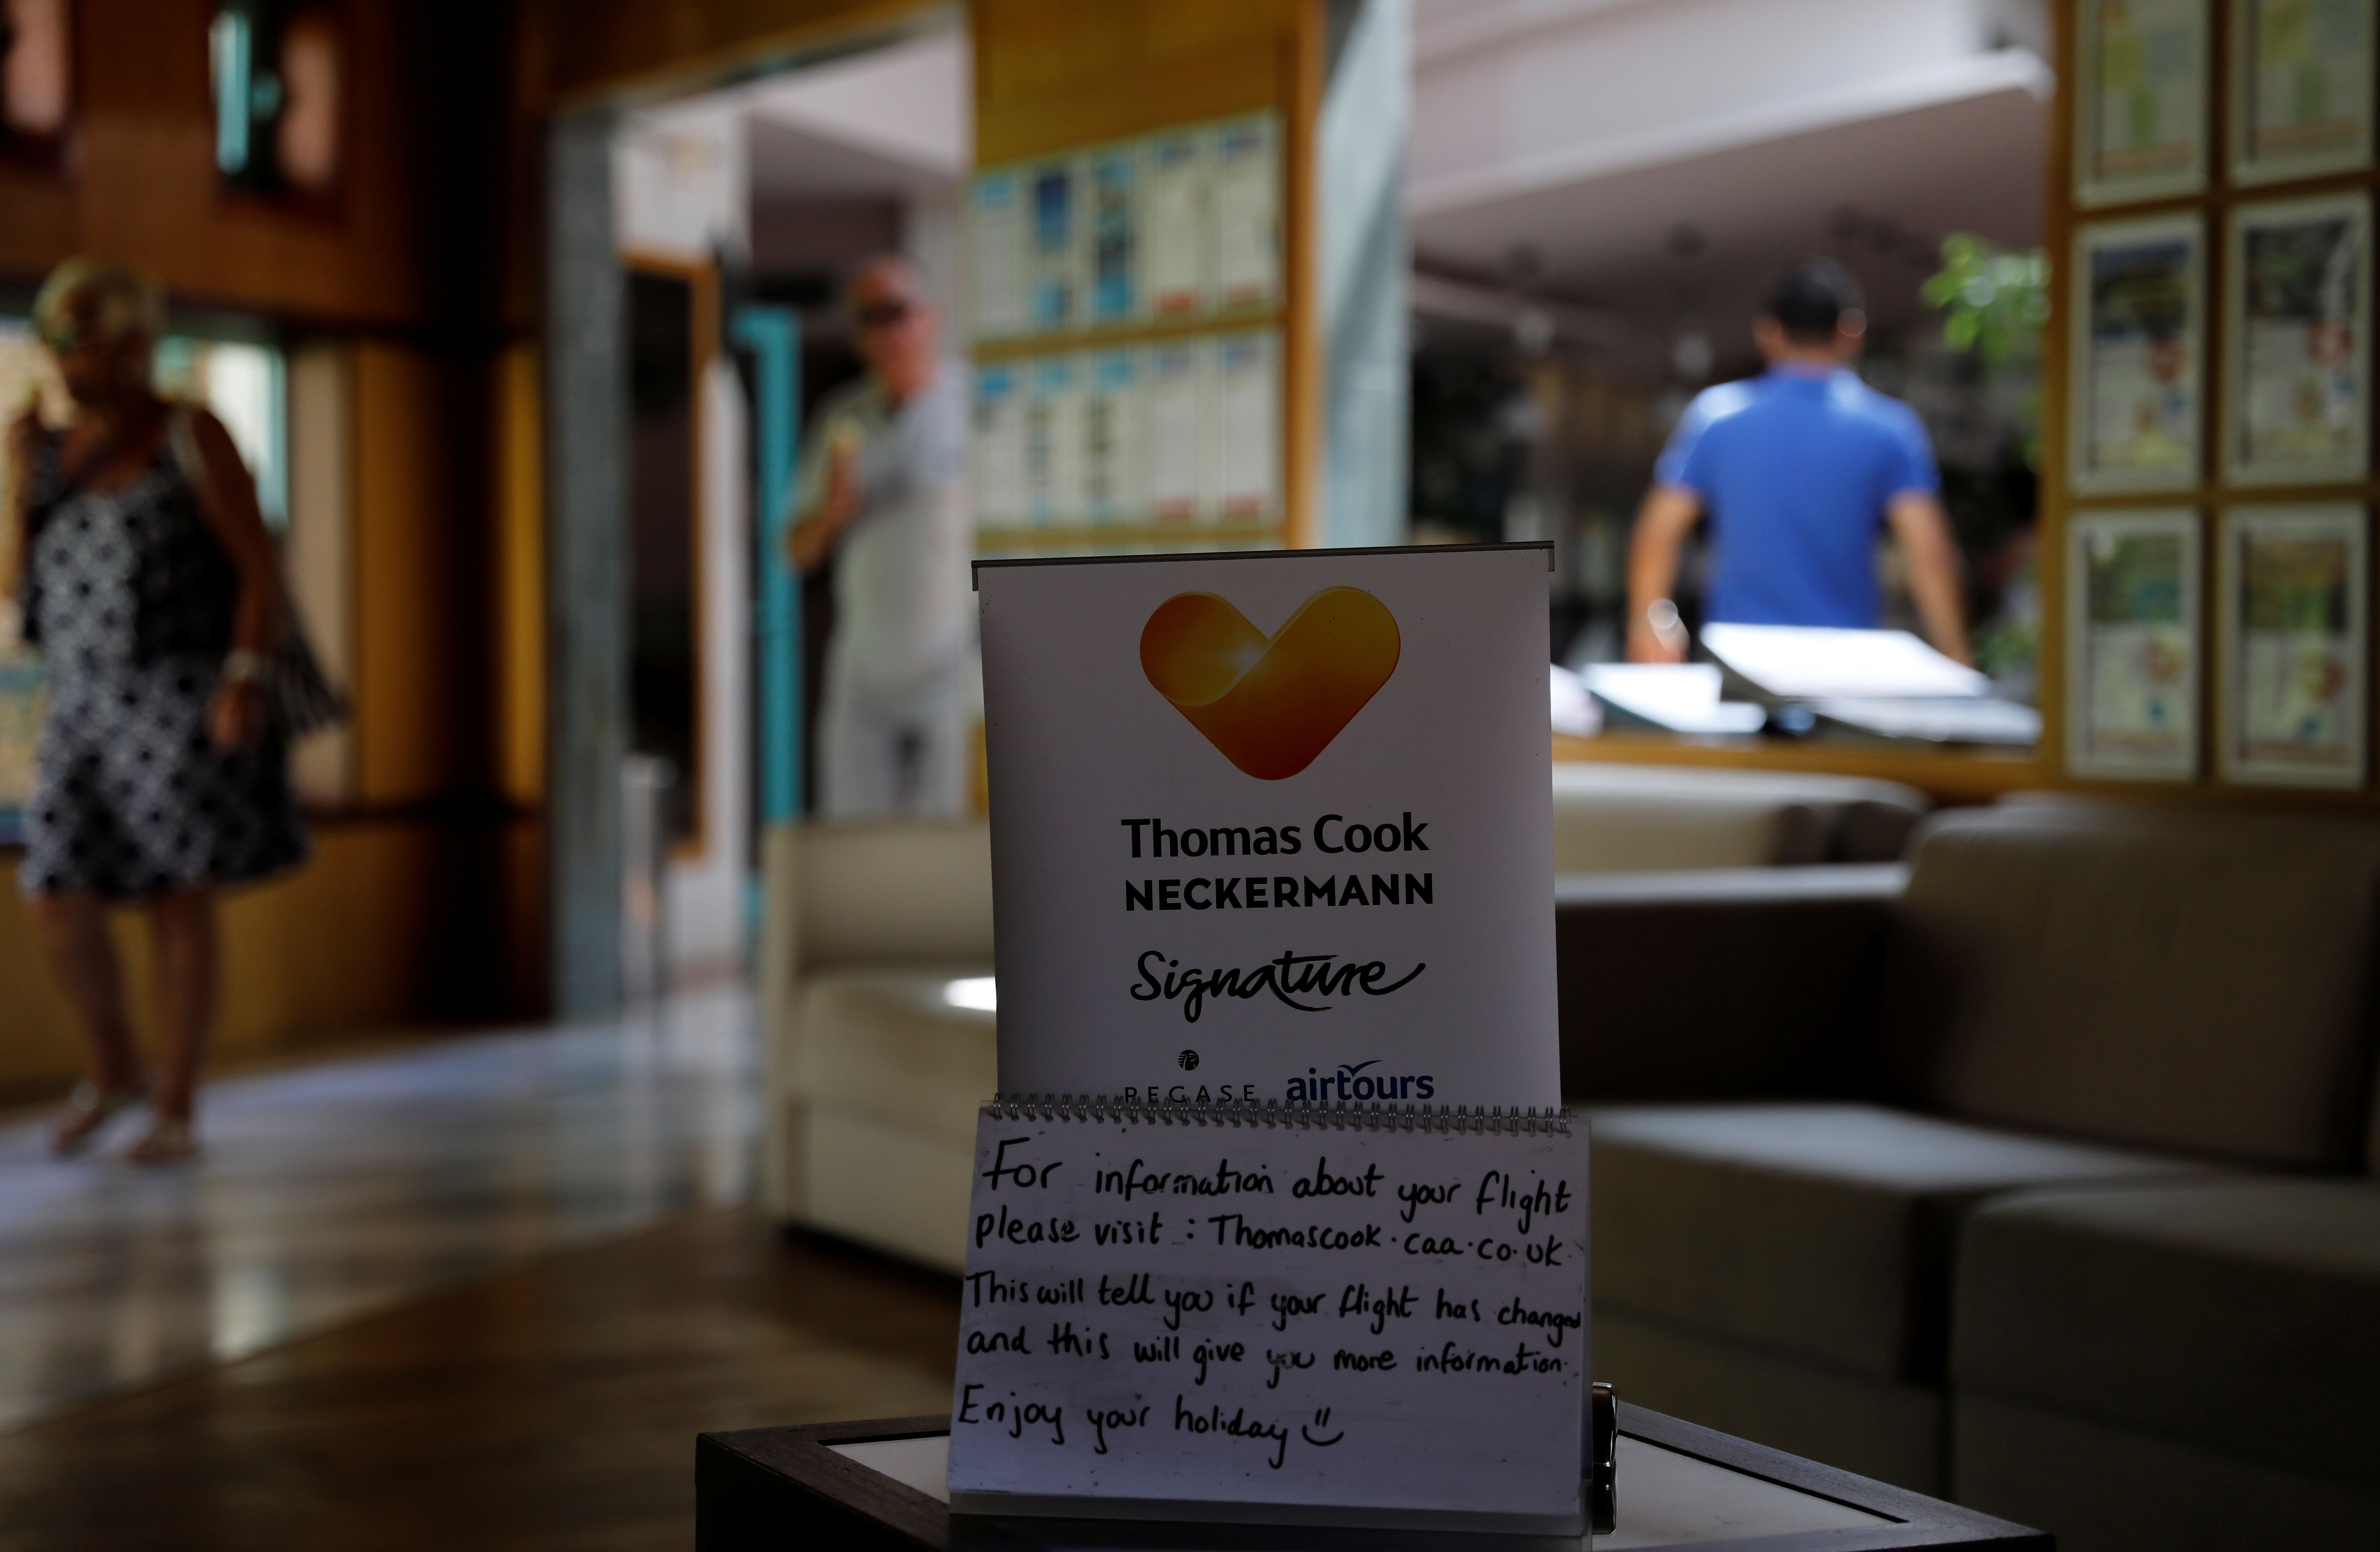 Thomas Cook
NECKERMANN
Signature
PEGASE airtours
For information about your flight
please visit : Thomascook.caa.co.uk.
This will tell you if your flight has changed
and this will give you more information.
Enjoy your holiday